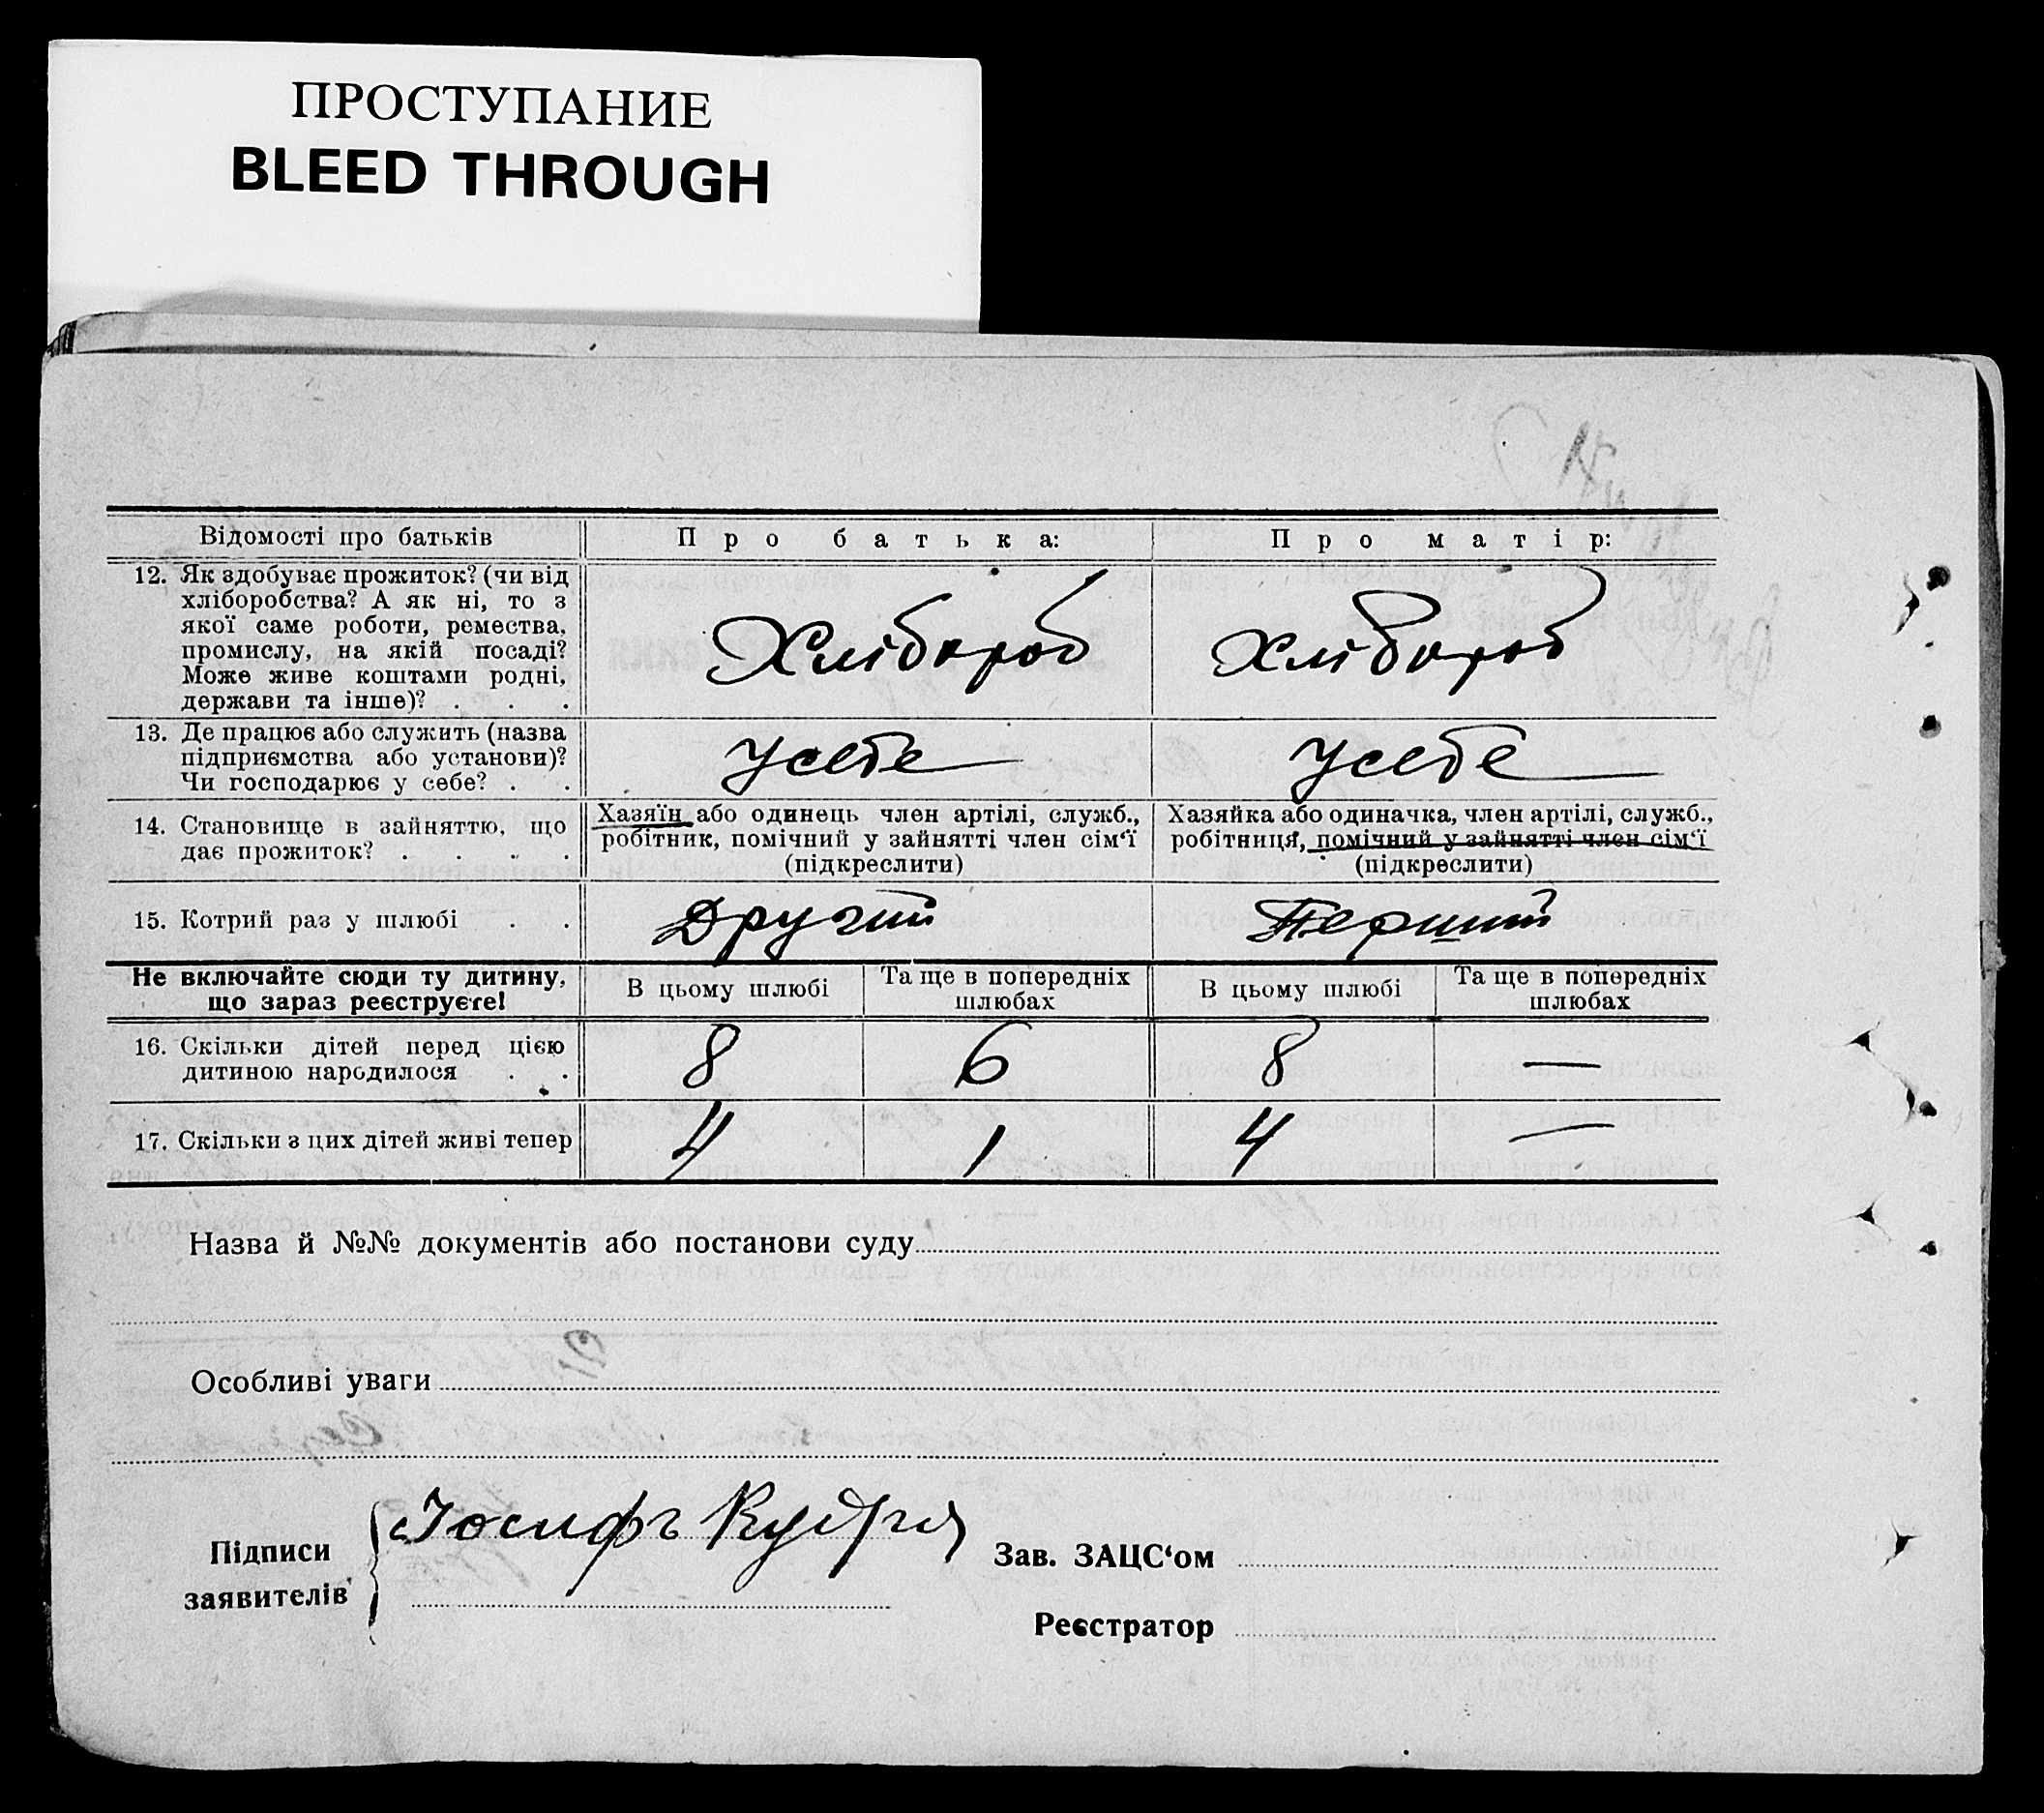 ПРОСТУПАНИЕ
BLEED THROUGH
Відомості про батьків
Про батька:
Про матір:
12. Як здобуває прожиток? (чи від
хліборобства? А як ні, то з
якої саме роботи, ремества,
промислу, на якій посаді?
Може живе коштами родні,
держави та інше)? . . .
Хлібороб
Хлібороб
13. Де працює або служить (назва
підприємства або установи)?
Чи господарює у себе? . .
У себе
У себе
14. Становище в зайняттю, що
дає прожиток? . . . .
Хазяїн або одинець член артілі, служб.,
робітник, помічний у зайнятті член сім‘ї
(підкреслити)
Хазяйка або одиначка, член артілі, служб.,
робітниця, помічний у зайнятті член сім‘ї
(підкреслити)
15. Котрий раз у шлюбі . .
Другий
Перший
Не включайте сюди ту дитину,
що зараз реєструєте!
В цьому шлюбі
Та ще в попередніх
шлюбах
В цьому шлюбі
Та ще в попередніх
шлюбах
16. Скільки дітей перед цією
дитиною народилося . .
8
6
8
—
17. Скільки з цих дітей живі тепер
4
1
4
—
Назва й №№ документів або постанови суду
Особливі уваги
Підписи
заявителів
Іосифъ Кудря
Зав. ЗАЦС‘ом
Реєстратор